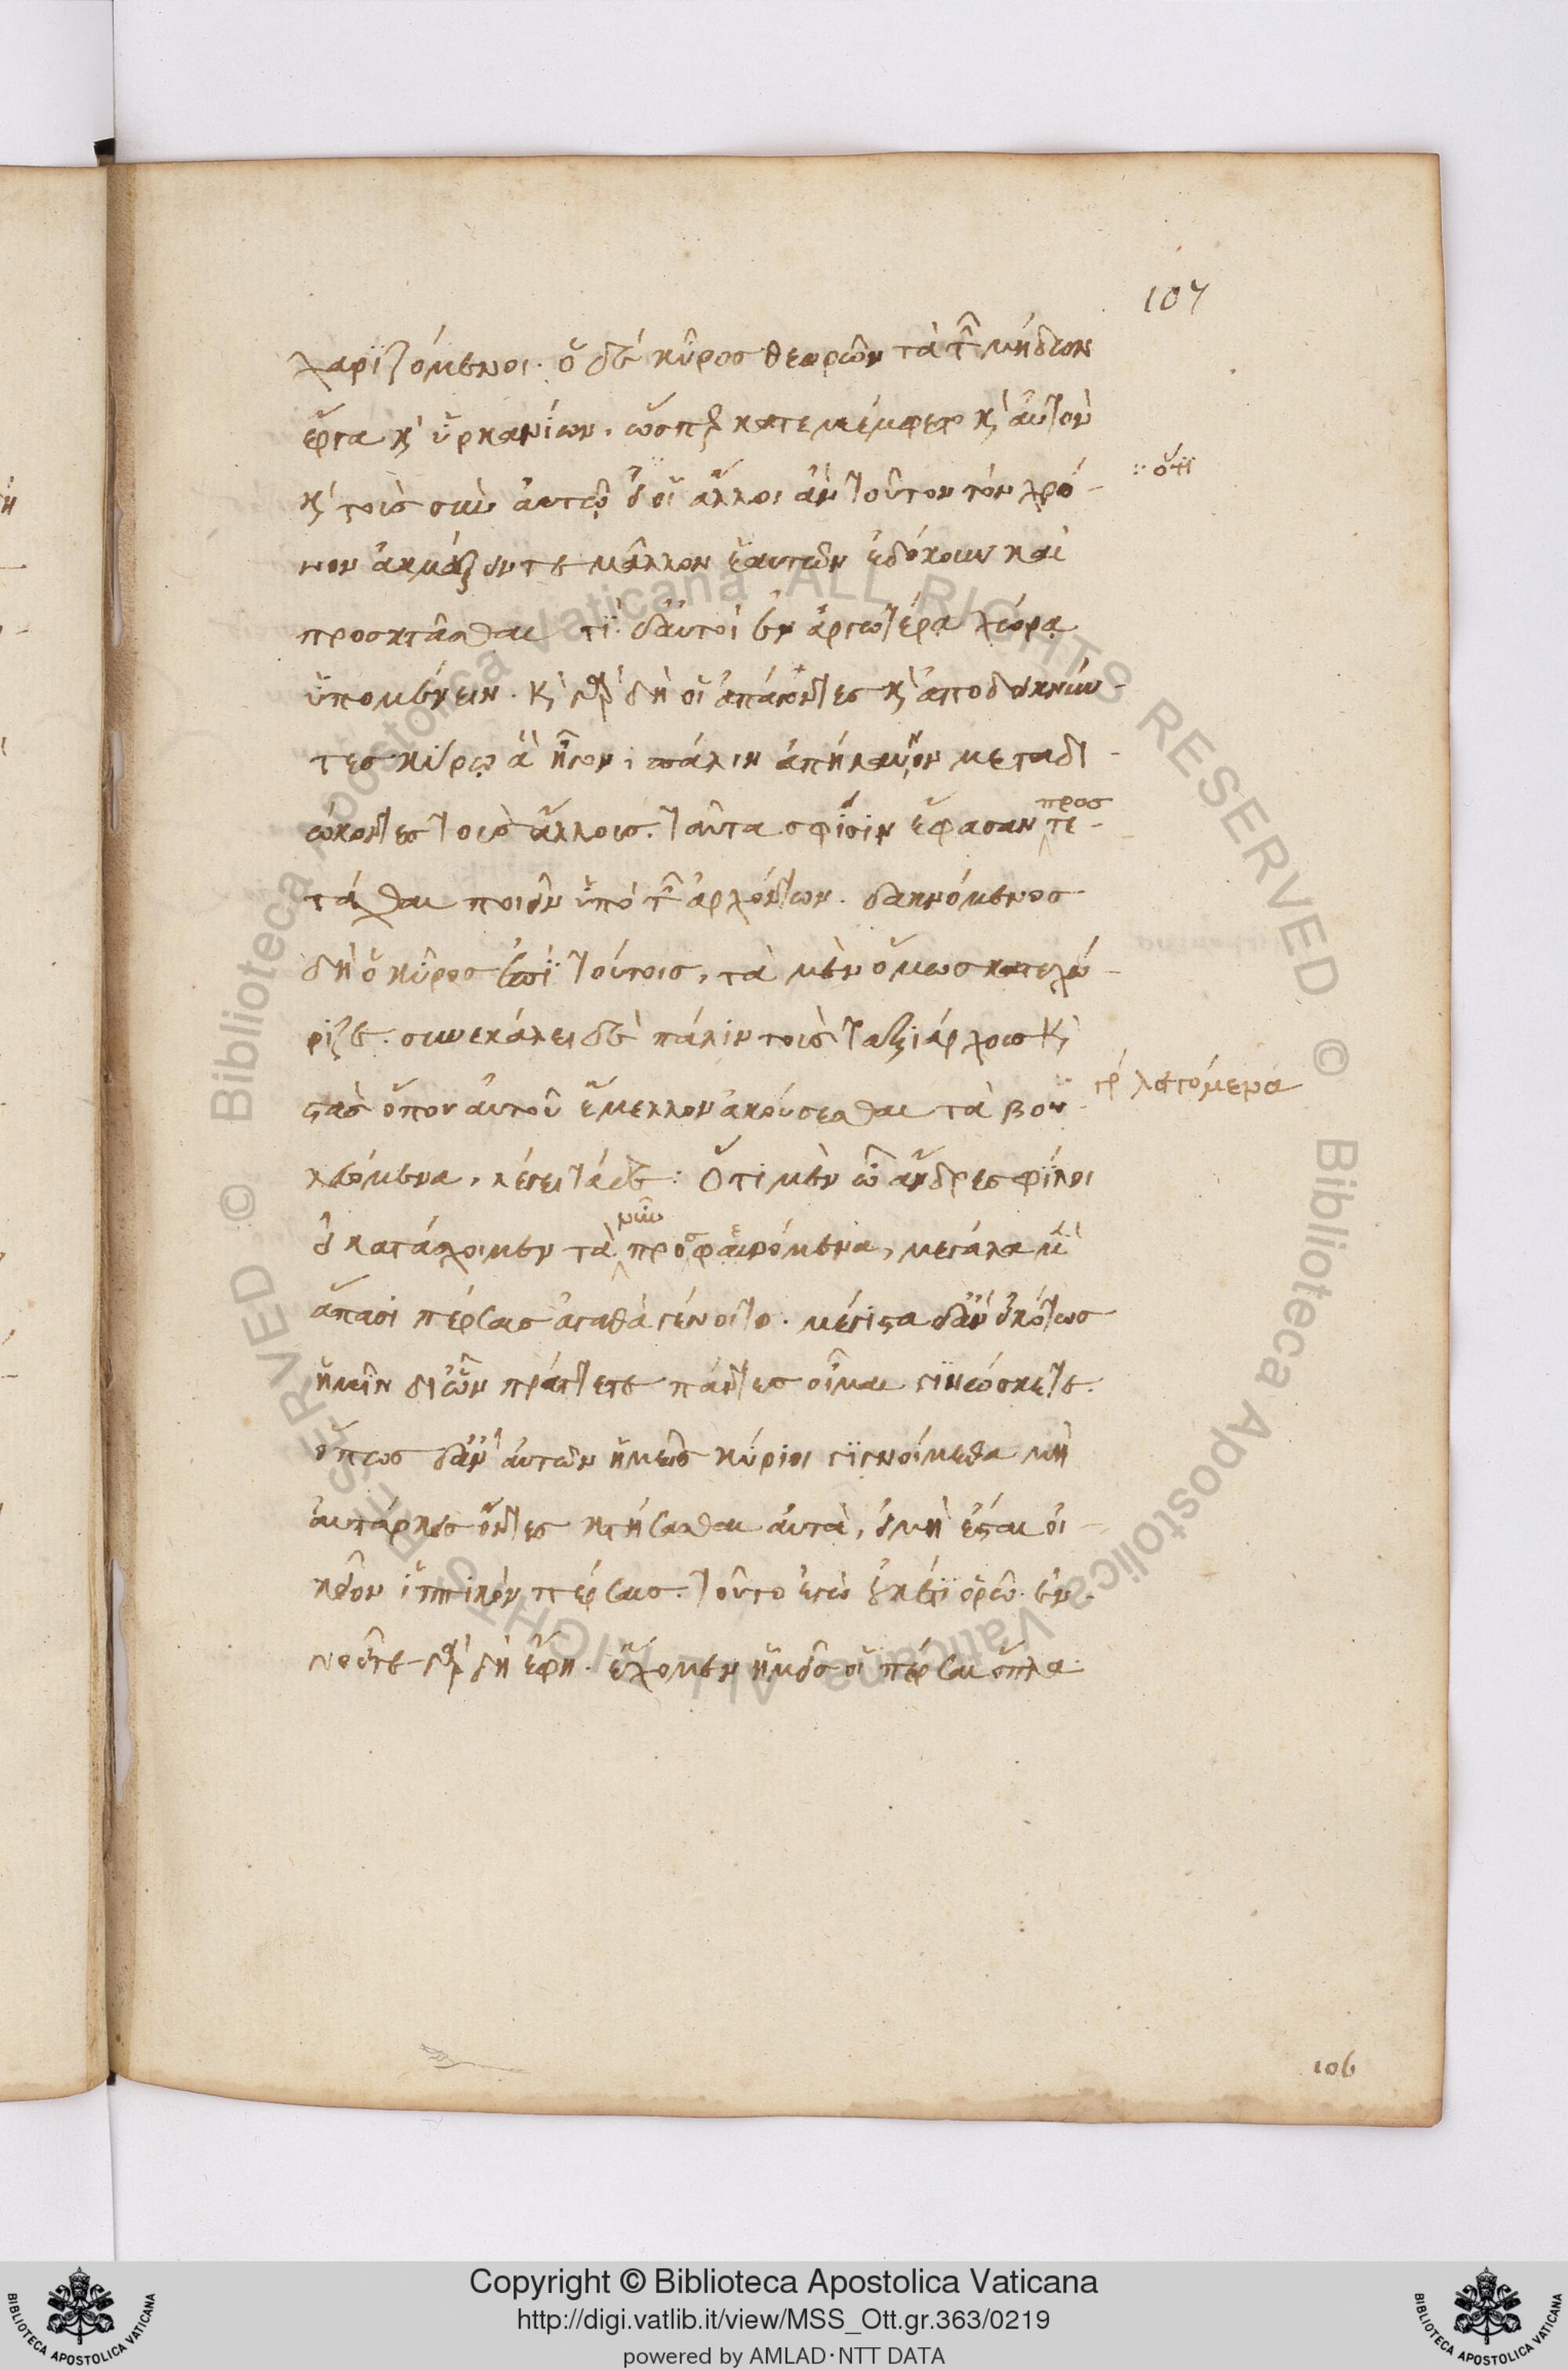 107
χαριζόμενοι. ὁ δὲ κῦρος θεωρῶν τὰ τῶν μήδων
ἔργα κ̀ ὑρκανίων. ὥσπερ κατεμέμφετο κ̀ αὑτὸν
:: ὅτι
κ̀ τοὺς σὺν αὐτῷ εἰ οἱ ἄλλοι ἂν τοῦτον τὸν χρό-
νον ἀκμάζοντες μᾶλλον ἑαυτῶν ἐδόκουν καὶ
προσκτᾶσθαί τι. οἱ δ' αὐτοὶ ἐν ἀργοτέρᾳ χώρᾳ
ὑπομένειν. κ̀ γὰρ δὴ οἱ ἀπάγοντες κ̀ ἀποδεικνύν-
τες κύρῳ ἃ ἦγον, πάλιν ἀπήλαυνον μεταδι-
ώκοντες τοὺς ἄλλους. ταῦτα σφίσιν ἔφασαν προσ τε-
τάχθαι ποιεῖν ὑπὸ τῶν ἀρχόντων. δακνόμενος
δὴ ὁ κῦρος ἐπὶ τούτοις, τὰ μὲν ὅμως κατεχώ-
ριζε. συνεκάλει δὲ πάλιν τοὺς ταξιάρχους κ̀
στὰς ὅπου αὐτοῦ ἔμελλον ἀκούσεσθαι τὰ βου-
λευόμενα, λέγει τάδε: Ὅτι μὲν ὦ ἄνδρες φίλοι
εἰ κατάσχοιμεν τὰ νῦν προφαινόμενα, μεγάλα μὲν
ἅπασι πέρσαις ἀγαθὰ γένοιτο. μέγιστα δ' ἂν εἰκότως
ἡμῖν δι' ὧν πράττεται πάντες οἶμαι γινώσκετε.
ὅπως δ' ἂν αὐτῶν ἡμεῖς κύριοι γιγνοίμεθα μὴ
αὐτάρκεις ὄντες κτήσασθαι αὐτά, εἰ μὴ ἔσται οἰ-
κεῖον ἱππικὸν πέρσαις. τοῦτο ἐγὼ οὐκέτι ὁρῶ. ἐν-
νοεῖτε γὰρ δὴ ἔφη. ἔχομεν ἡμεῖς οἱ πέρσαι ὅπλα
106
Copyright © Biblioteca Apostolica Vaticana
http://digi.vatlib.it/view/MSS_Ott.gr.363/0219
powered by AMLAD·NTT DATA